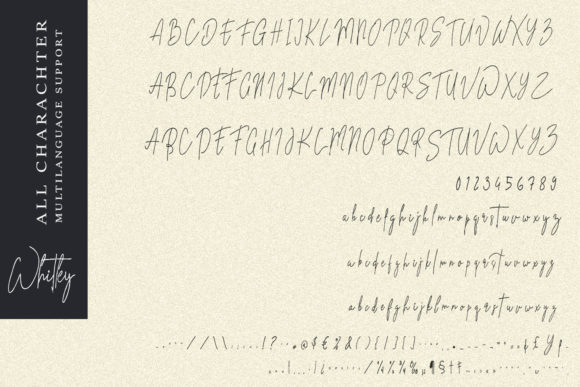 ALL CHARACHTER
MULTILANGUAGE SUPPORT
Whitky
ABCDEFGHIJKLMNOPQRSTUVWXYZ
ABCDEFGHIJKLMNOPQRSTUVWXYZ
ABCDEFGHIJKLMNOPQRSTUVWXYZ
0123456789
abcdefghijklmnopqrstuvwxyz
abcdefghijklmnopqrstuvwxyz
abcdefghijklmnopqrstuvwxyz